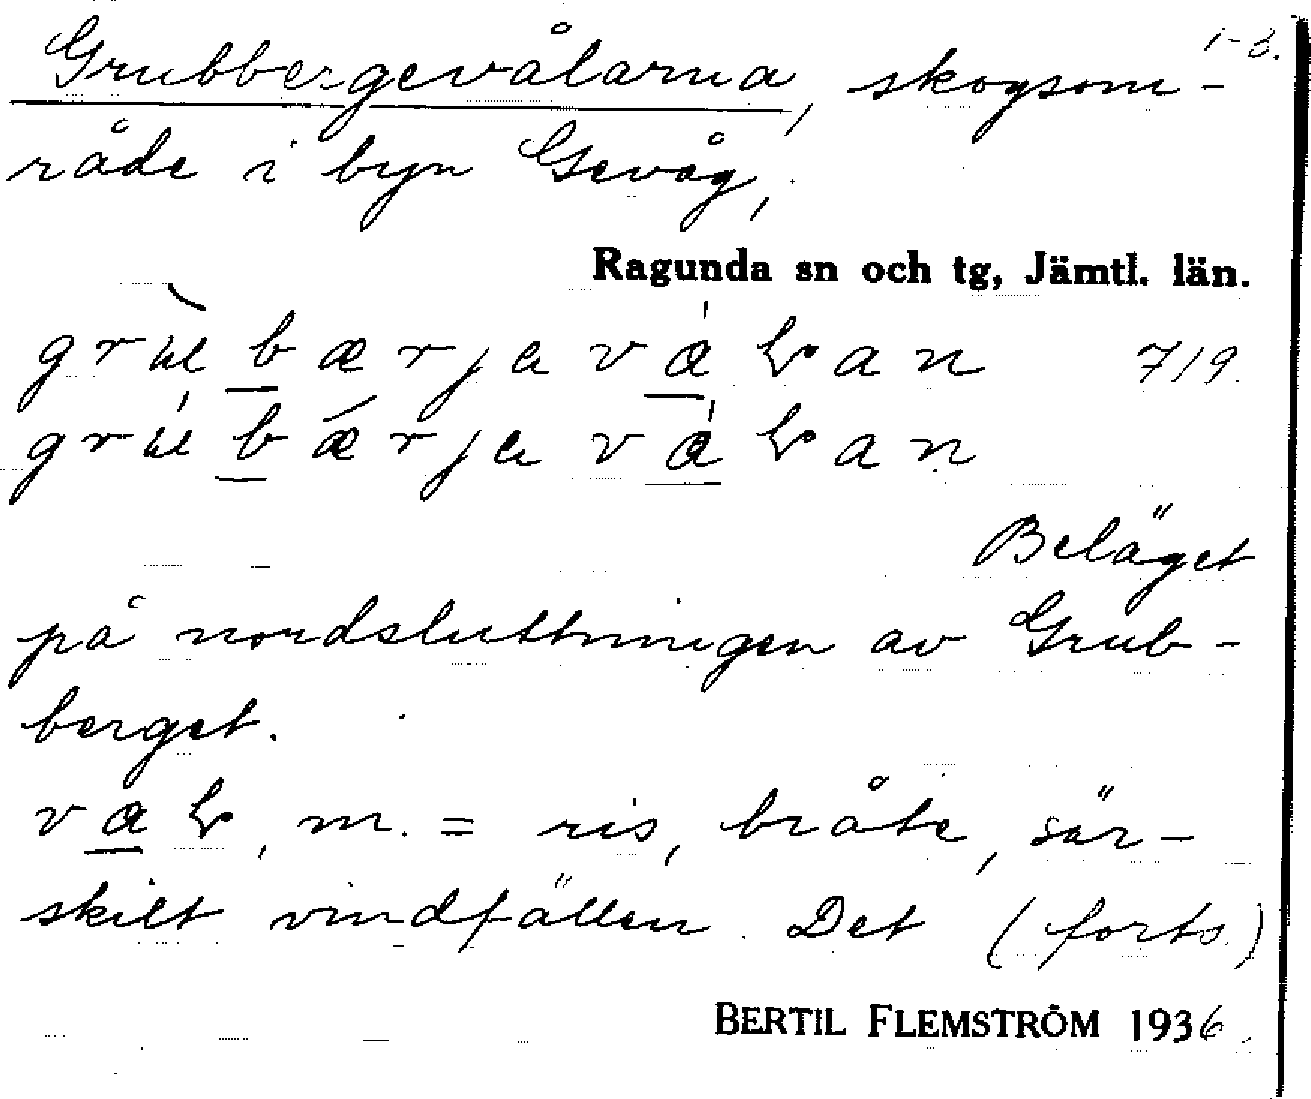 1-2.
Grubbergevålarna, skogsom-
råde i byn Gevåg,
Ragunda sn och tg, Jämtl. län.
719.
Beläget
på nordsluttningen av Grub-
berget.
m. = ris, bråte, sär-
skilt vindfällen. Det (forts.)
BERTIL FLEMSTRÖM 1936.